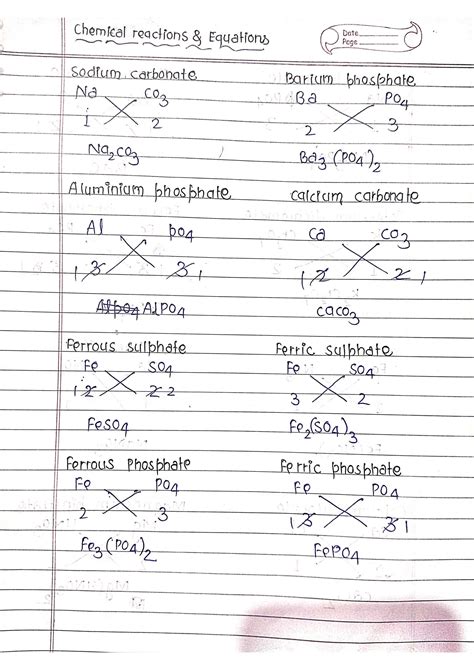 Chemical reactions & Equations
Date
Page
Sodium carbonate
Na CO3
1 2
Na2CO3
Barium phosphate
Ba PO4
2 3
Ba3(PO4)2
Aluminium phosphate
Al PO4
1 3 3 1
AlPO4 AlPO4
Calcium carbonate
Ca CO3
1 2 2 1
CaCO3
Ferrous sulphate
Fe SO4
1 2 2 2
FeSO4
Ferric sulphate
Fe SO4
3 2
Fe2(SO4)3
Ferrous phosphate
Fe PO4
2 3
Fe3(PO4)2
Ferric phosphate
Fe PO4
1 3 3 1
FePO4